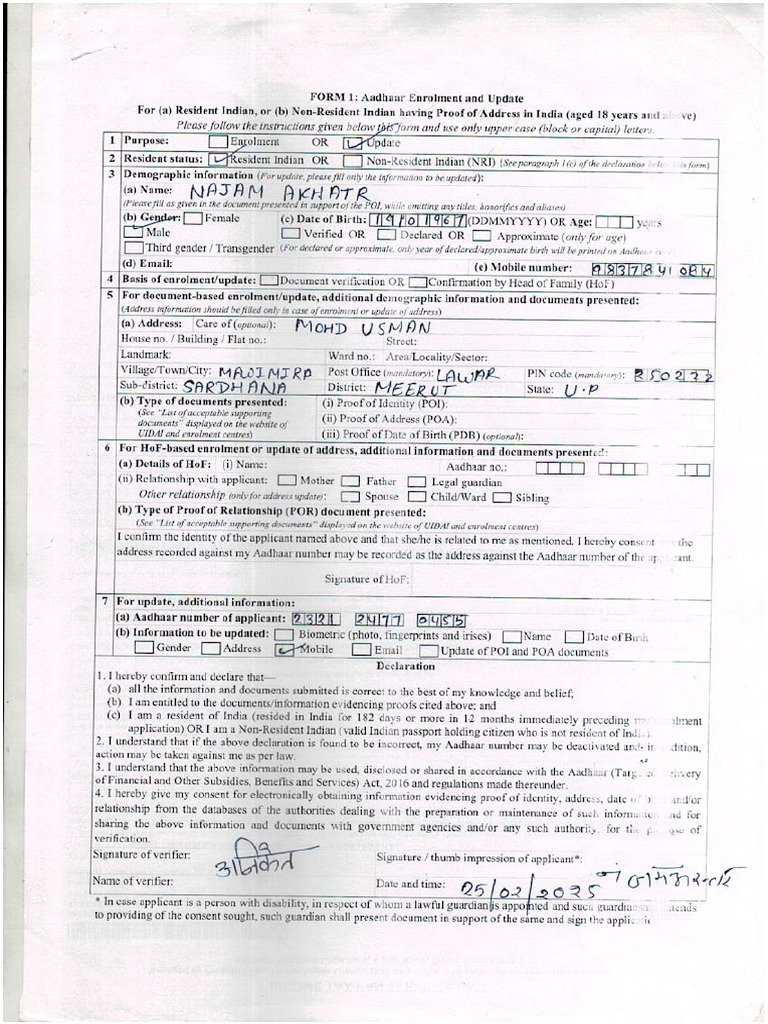 FORM 1: Aadhaar Enrolment and Update
For (a) Resident Indian, or (b) Non-Resident Indian having Proof of Address in India (aged 18 years and above)
Please follow the instructions given below this form and use only upper case (block or capital) letters.
1 Purpose: Enrolment OR Update
2 Resident status: Resident Indian OR Non-Resident Indian (NRI) (See paragraph 1(c) of the declaration below this form)
3 Demographic information (For update, please fill only the information to be updated):
(a) Name: NAJAM AKHATR
(Please fill as given in the document presented in support of the POI, while omitting any titles, honorifics and aliases)
(b) Gender: Female (c) Date of Birth: 19101967 (DDMMYYYY) OR Age: years
Male Verified OR Declared OR Approximate (only for age)
Third gender / Transgender (For declared or approximate, only year of declared/approximate birth will be printed on Aadhaar
(d) Email: (e) Mobile number: 9837841084
4 Basis of enrolment/update: Document verification OR Confirmation by Head of Family (HoF)
5 For document-based enrolment/update, additional demographic information and documents presented:
(Address information should be filled only in case of enrolment or update of address)
(a) Address: Care of (optional): MOHD USMAN
House no. / Building / Flat no.: Street:
Landmark: Ward no.: Area/Locality/Sector:
Village/Town/City: MAJIMIRA Post Office (mandatory): LAWAR PIN code (mandatory): 250222
Sub-district: SARDHANA District: MEERUT State: U.P
(b) Type of documents presented: (i) Proof of Identity (POI):
(See "List of acceptable supporting
documents" displayed on the website of
UIDAI and enrolment centres)
(ii) Proof of Address (POA):
(iii) Proof of Date of Birth (PDB) (optional):
6 For HoF-based enrolment or update of address, additional information and documents presented:
(a) Details of HoF: (i) Name: Aadhaar no.:
(ii) Relationship with applicant: Mother Father Legal guardian
Other relationship (only for address update): Spouse Child/Ward Sibling
(b) Type of Proof of Relationship (POR) document presented:
(See "List of acceptable supporting documents" displayed on the website of UIDAI and enrolment centres)
I confirm the identity of the applicant named above and that she/he is related to me as mentioned. I hereby consent the
address recorded against my Aadhaar number may be recorded as the address against the Aadhaar number of the applicant.
Signature of HoF:
7 For update, additional information:
(a) Aadhaar number of applicant: 2321 2477 0455
(b) Information to be updated: Biometric (photo, fingerprints and irises) Name Date of Birth
Gender Address Mobile Email Update of POI and POA documents
Declaration
1. I hereby confirm and declare that—
(a) all the information and documents submitted is correct to the best of my knowledge and belief;
(b) I am entitled to the documents/information evidencing proofs cited above; and
(c) I am a resident of India (resided in India for 182 days or more in 12 months immediately preceding my enrolment
application) OR I am a Non-Resident Indian (valid Indian passport holding citizen who is not resident of India).
2. I understand that if the above declaration is found to be incorrect, my Aadhaar number may be deactivated and in addition,
action may be taken against me as per law.
3. I understand that the above information may be used, disclosed or shared in accordance with the Aadhaar (Targeted Delivery
of Financial and Other Subsidies, Benefits and Services) Act, 2016 and regulations made thereunder.
4. I hereby give my consent for electronically obtaining information evidencing proof of identity, address, date of birth and/or
relationship from the databases of the authorities dealing with the preparation or maintenance of such information and for
sharing the above information and documents with government agencies and/or any such authority, for the purpose of
verification.
Signature of verifier: अनिकेत Signature / thumb impression of applicant*:
Name of verifier: Date and time: 25/02/2025
* In case applicant is a person with disability, in respect of whom a lawful guardian is appointed and such guardian intends
to providing of the consent sought, such guardian shall present document in support of the same and sign the